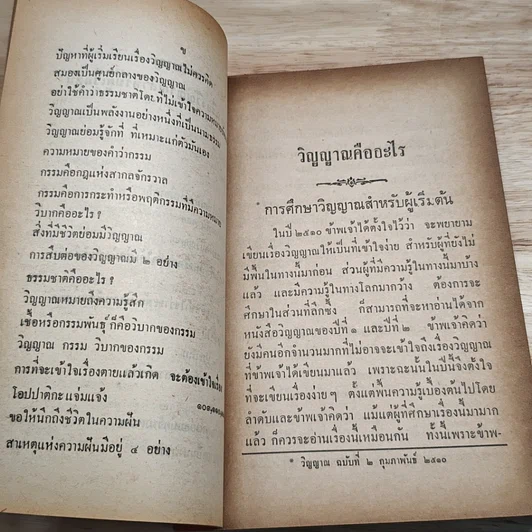 ข
ปัญหาที่ผู้เริ่มเรียนเรื่องวิญญาณไม่ควรคิด
สมองเป็นศูนย์กลางของวิญญาณ
อย่าใช้คำว่าธรรมชาติโดยที่ไม่เข้าใจความหมาย
วิญญาณเป็นพลังงานอย่างหนึ่งที่เป็นนามธรรม
วิญญาณย่อมรู้จักที่ ที่เหมาะแก่ตัวมันเอง
ความหมายของคำว่ากรรม
กรรมคือกฎแห่งสากลจักรวาล
กรรมคือการกระทำหรือพฤติกรรมที่มีความหมาย
วิบากคืออะไร ?
สิ่งที่มีชีวิตย่อมมีวิญญาณ
การสืบต่อของวิญญาณมี ๒ อย่าง
ธรรมชาติคืออะไร ?
วิญญาณหมายถึงความรู้สึก
เชื้อหรือกรรมพันธุ์ ก็คือวิบากของกรรม
วิญญาณ กรรม วิบากของกรรม
การที่จะเข้าใจเรื่องตายแล้วเกิด จะต้องเข้าใจเรื่อง
โอปปาติกะแจ่มแจ้ง
ขอให้นึกถึงชีวิตในความฝัน
สาเหตุแห่งความฝันมีอยู่ ๔ อย่าง
วิญญาณคืออะไร
* การศึกษาวิญญาณสำหรับผู้เริ่มต้น
ในปี ๒๕๑๐ ข้าพเจ้าได้ตั้งใจไว้ว่า จะพยายาม
เขียนเรื่องวิญญาณให้เป็นที่เข้าใจง่าย สำหรับผู้ที่ยังไม่
มีพื้นในทางนี้มาก่อน ส่วนผู้ที่มีความรู้ในทางนี้มาบ้าง
แล้ว และมีความรู้ในทางโลกมากว้าง ต้องการจะ
ศึกษาในส่วนที่ลึกซึ้ง ก็สามารถที่จะหาอ่านได้จาก
หนังสือวิญญาณของปีที่ ๑ และปีที่ ๒ ข้าพเจ้าคิดว่า
ยังมีคนอีกจำนวนมากที่ไม่อาจจะเข้าใจถึงเรื่องวิญญาณ
ที่ข้าพเจ้าได้เขียนมาแล้ว เพราะฉะนั้นในปีนี้จึงตั้งใจ
ที่จะเขียนเรื่องง่ายๆ ตั้งแต่พื้นความรู้เบื้องต้นไปโดย
ลำดับและข้าพเจ้าคิดว่า แม้แต่ผู้ที่ศึกษาเรื่องนี้มามาก
แล้ว ก็ควรจะอ่านเรื่องนี้เหมือนกัน ทั้งนี้เพราะข้าพ-
* วิญญาณ ฉบับที่ ๒ กุมภาพันธ์ ๒๕๑๐